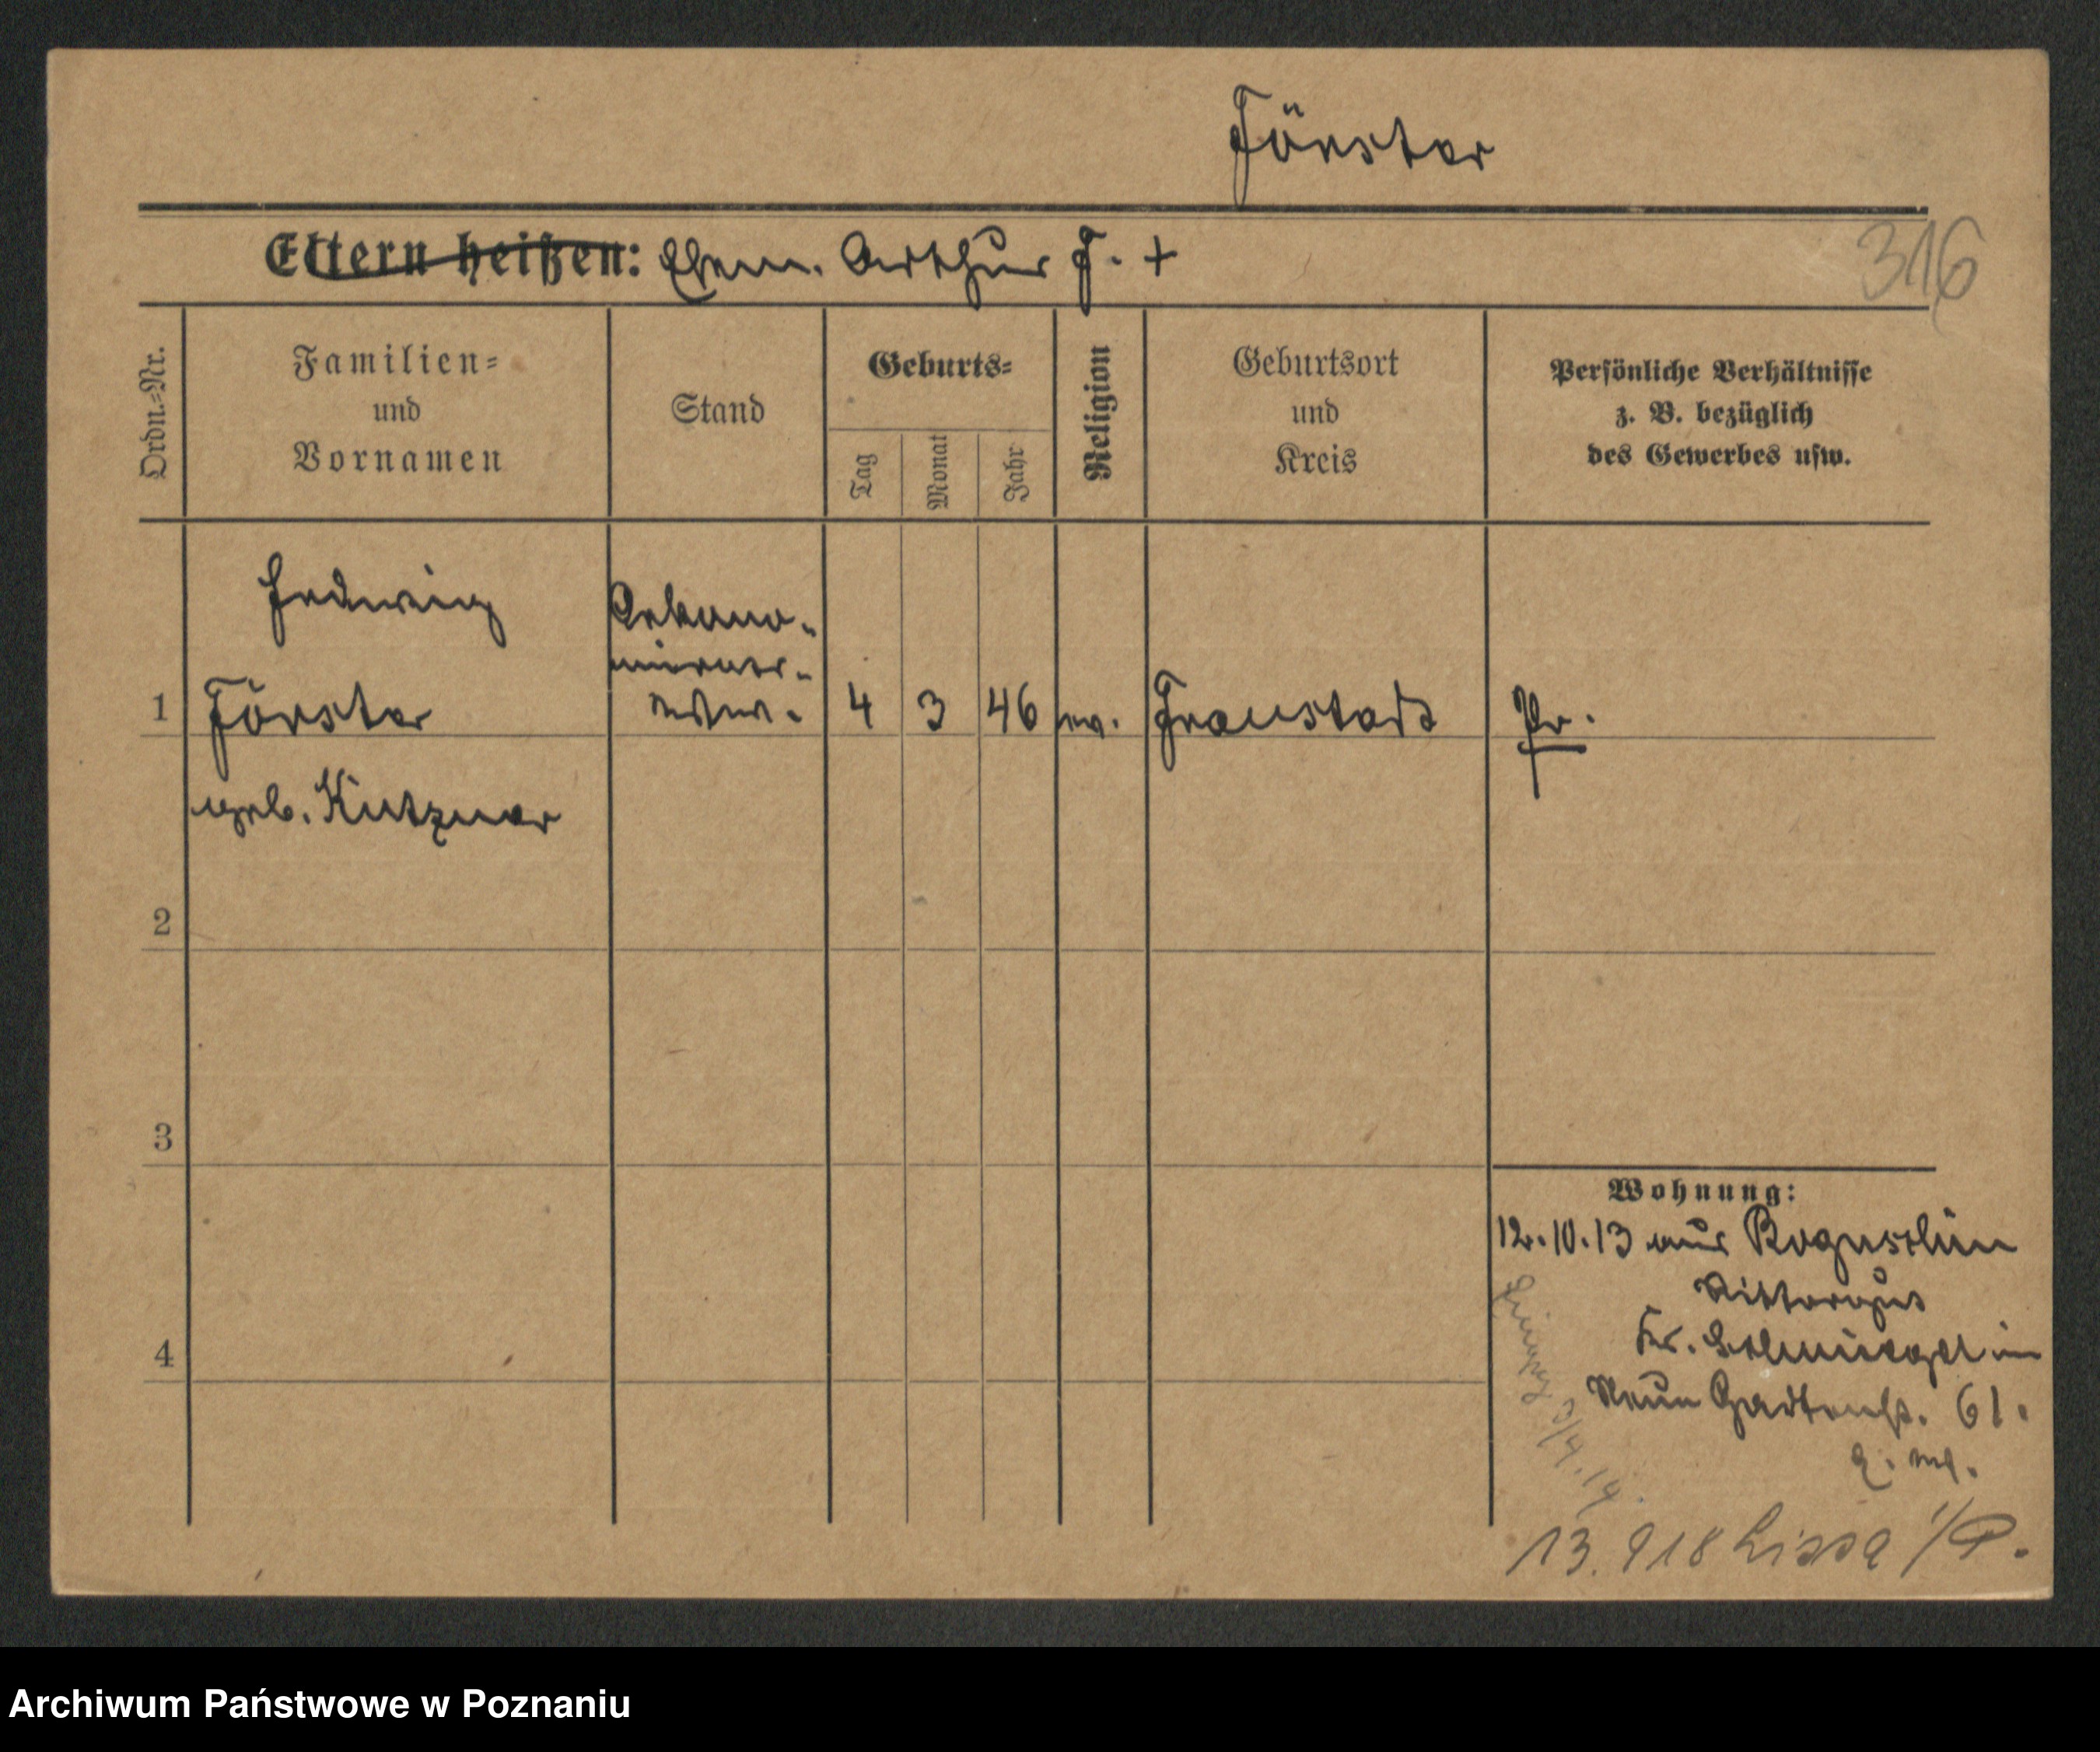 Förster
Eltern heißen: Ehem. Arthur F. +
316
Ordn.-Nr.
Familien-
und
Vornamen
Stand
Geburts-
Tag
Monat
Jahr
Religion
Geburtsort
und
Kreis
Persönliche Verhältnisse
z. B. bezüglich
des Gewerbes usw.
Hedwig
1 Förster
geb. Kutzner
Oekono-
4 3 46 ev. Fraustadt Pr.
2
3
4
Wohnung:
12.10.13 aus
Rittergut
Kr. Schmiegel in
Neue Gartenst. 61.
13. 918 Lissa i/P.
Archiwum Państwowe w Poznaniu